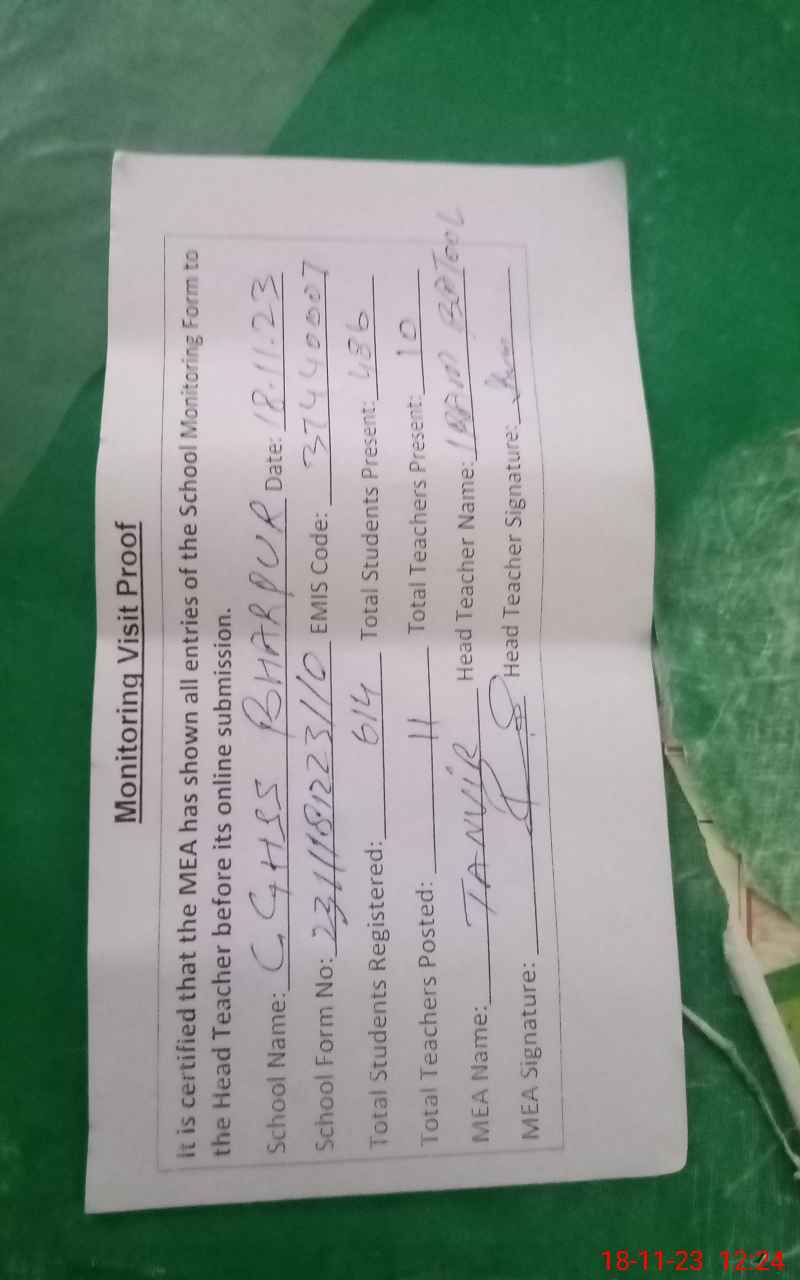 Monitoring Visit Proof
It is certified that the MEA has shown all entries of the School Monitoring Form to
the Head Teacher before its online submission.
School Name: GGHSS BHARPUR Date: 18.11.23
School Form No: 2311181223110 EMIS Code: 37440007
Total Students Registered: 614 Total Students Present: 486
Total Teachers Posted: 11 Total Teachers Present: 10
MEA Name: TANVIR Head Teacher Name: BATOOL
MEA Signature: Head Teacher Signature:
18-11-23 12:24